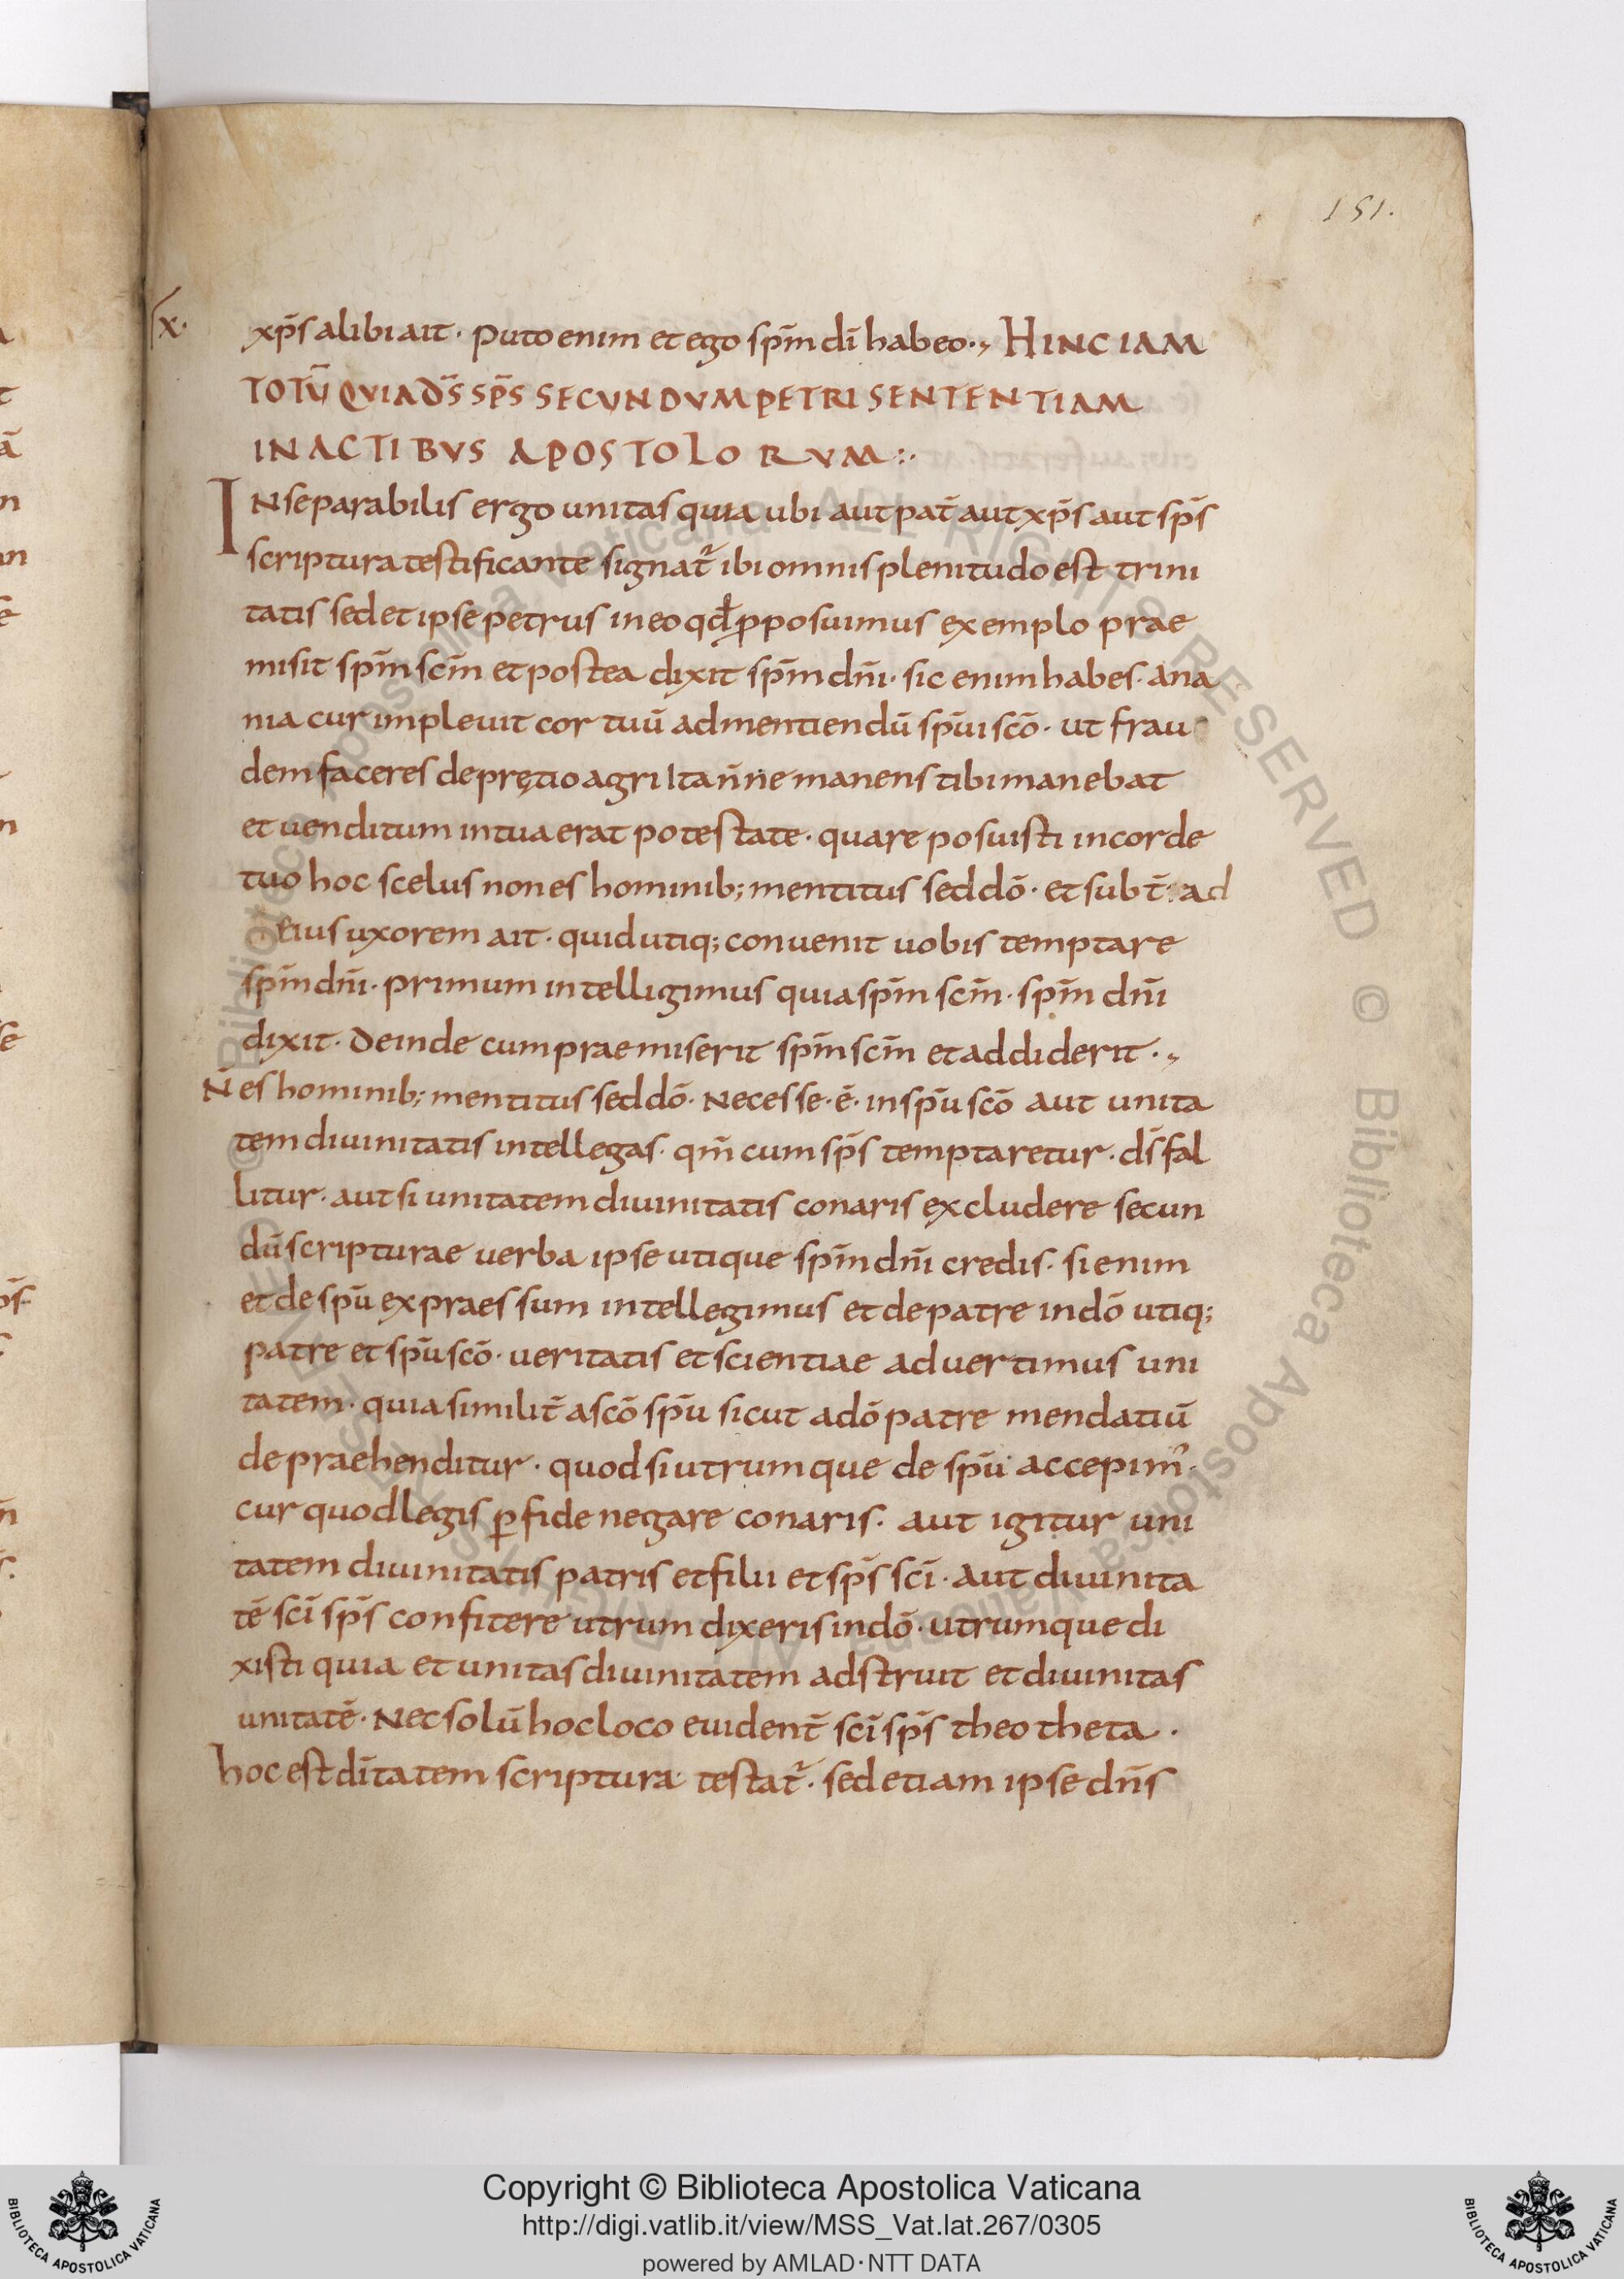 151.
x·
xp̄s alibi ait · puto enim et ego sp̄m dī habeo·, HINC IAM
TOTŪ QVIA DS̄ SPS̄ SECVNDVM PETRI SENTENTIAM
IN ACTIBVS APOSTOLORVM:·
INseparabilis ergo unitas quia ubi aut pat̄ aut xp̄s aut sp̄s
scriptura testificante signat᷑ ibi omnis plenitudo est trini
tatis sed et ipse petrus in eo qđ p̱posuimus exemplo prae
misit sp̄m sc̄m et postea dixit sp̄m dn̄i · sic enim habes · ana
nia cur implevit cor tuū ad mentiendū sp̄ui scō · ut frau
dem faceres de prętio agri Ita n̄ne manens tibi manebat
et uenditum in tua erat potestate · quare posuisti in corde
tuo hoc scelus non es hominib; mentitus sed dō · et subt̄ ad
eius uxorem ait · quid utiq; convenit uobis temptare
sp̄m dn̄i · primum intelligimus quia sp̄m sc̄m · sp̄m dn̄i
dixit · Deinde cum praemiserit sp̄m sc̄m et addiderit ·,
N̄ es hominib; mentitus sed dō · Necesse · ē · in sp̄u scō aut unita
tem divinitatis intellegas · qm̄ cum sp̄s temptaretur · ds̄ fal
litur · aut si unitatem divinitatis conaris excludere secun
dū scripturae verba ipse utique sp̄m dn̄i credis · si enim
et de sp̄u expraessum intellegimus et de patre in dō utiq;
patre et sp̄u scō · ueritatis et scientiae advertimus uni
tatem · quia similit̄ a scō sp̄u sicut a dō patre mendatiū
depraehenditur · quod si utrumque de sp̄u accepim᾽ ·
cur quod legis ꝑfide negare conaris · aut igitur uni
tatem divinitatis patris et filii et sp̄s scī · aut divinita
tē scī sp̄s confitere utrum dixeris in dō · utrumque di
xisti quia et unitas divinitatem adstruit et divinitas
unitatē · Nec solū hoc loco evident̄ scī sp̄s theotheta ·
hoc est dītatem scriptura testat᷑ · sed etiam ipse dn̄s
Copyright © Biblioteca Apostolica Vaticana
http://digi.vatlib.it/view/MSS_Vat.lat.267/0305
powered by AMLAD·NTT DATA
BIBLIOTECA APOSTOLICA VATICANA
BIBLIOTECA APOSTOLICA VATICANA